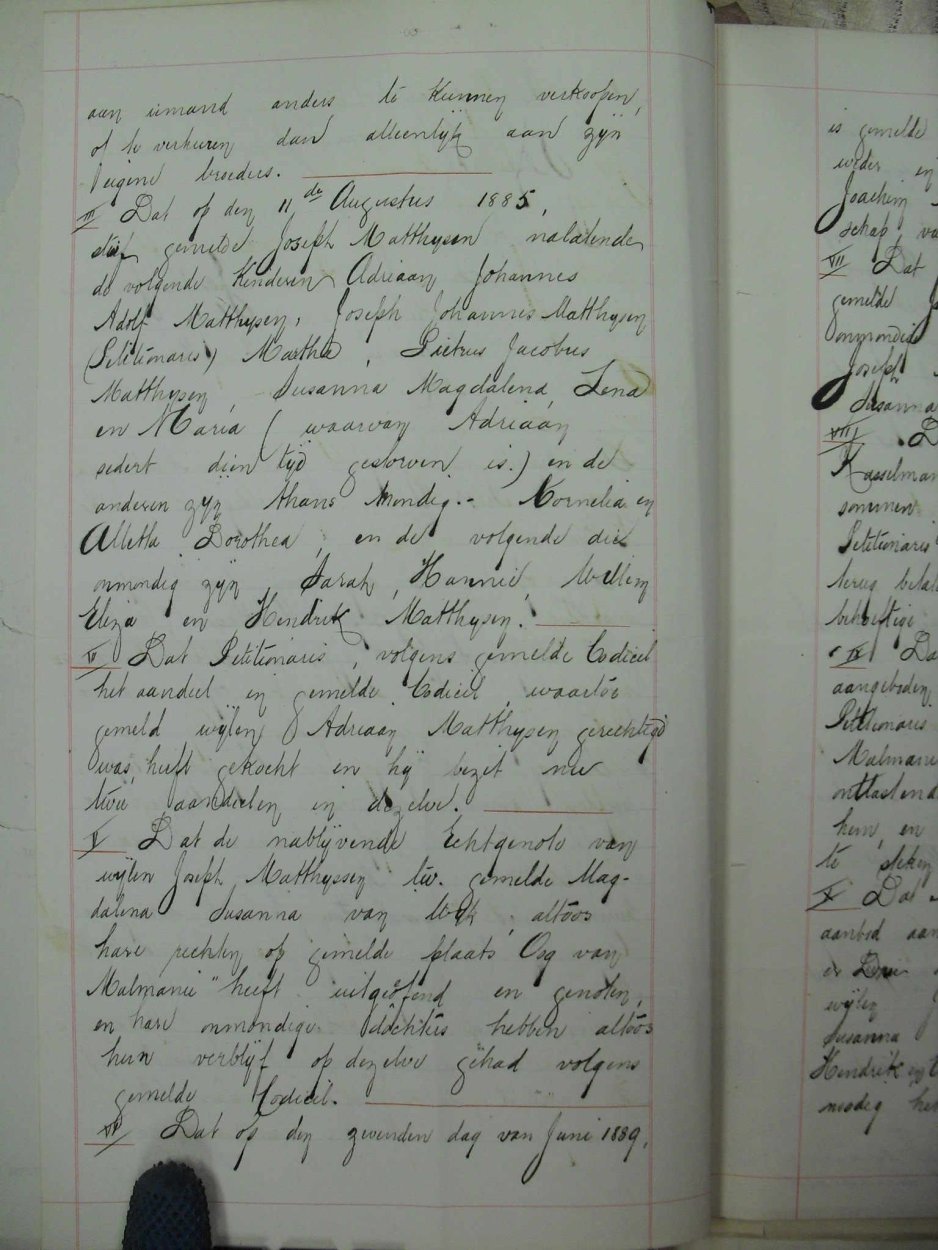 aan iemand anders te kunnen verkoopen,
of te verhuren dan alleenlyk aan zyn
eigene broeders.
III Dat op den 11de Augustus 1885,
stief gemelde Joseph Matthysen nalatende
de volgende Kinderen Adriaan Johannes
Adolf Matthysen, Joseph Johannes Matthysen
(Petitionaris) Martha, Pietrus Jacobus
Matthysen, Susanna Magdalena, Lena
en Maria (waarvan Adriaan
sedert dien tyd gestorven is.) en de
anderen zyn thans Mondig. - Kornelia en
Alletta Dorothea, en de volgende die
onmondig zyn, Sarah, Hannie, Willem
Eliza en Hendrik Matthysen.
IV Dat Petitionaris, volgens gemelde Codicil
het aandeel in gemelde Codicil waartoe
gemeld wylen Adriaan Matthysen gerechtigd
was, heeft gekocht en hy bezit nu
twee aandeelen in dezelve.
V Dat de nablyvende Echtgenote van
wylen Joseph Matthyssen tw. gemelde Mag-
dalena Susanna van Wyk, altoos
hare rechten op gemelde plaats Oog van
Malmanie" heeft uitgeöffend en genoten,
en hare onmondige dochters hebben altoos
hun verblyf op dezelve gehad volgens
gemelde Codicil.
VI Dat op den zevenden dag van Juni 1889,
is gemelde
weder en
Joachim
schap, va
VII Dat
gemelde J
onmondig
Joseph
Susanna
VIII D
Kasselman
sommen
Petitionaris
terug betal
behoeftige
IX Da
aangeboden
Petitionaris
Malmanie
ontlastend
hem, en
te steken
X Dat
aanbod aan
wylen
Susanna
Hendrik en
noodig he